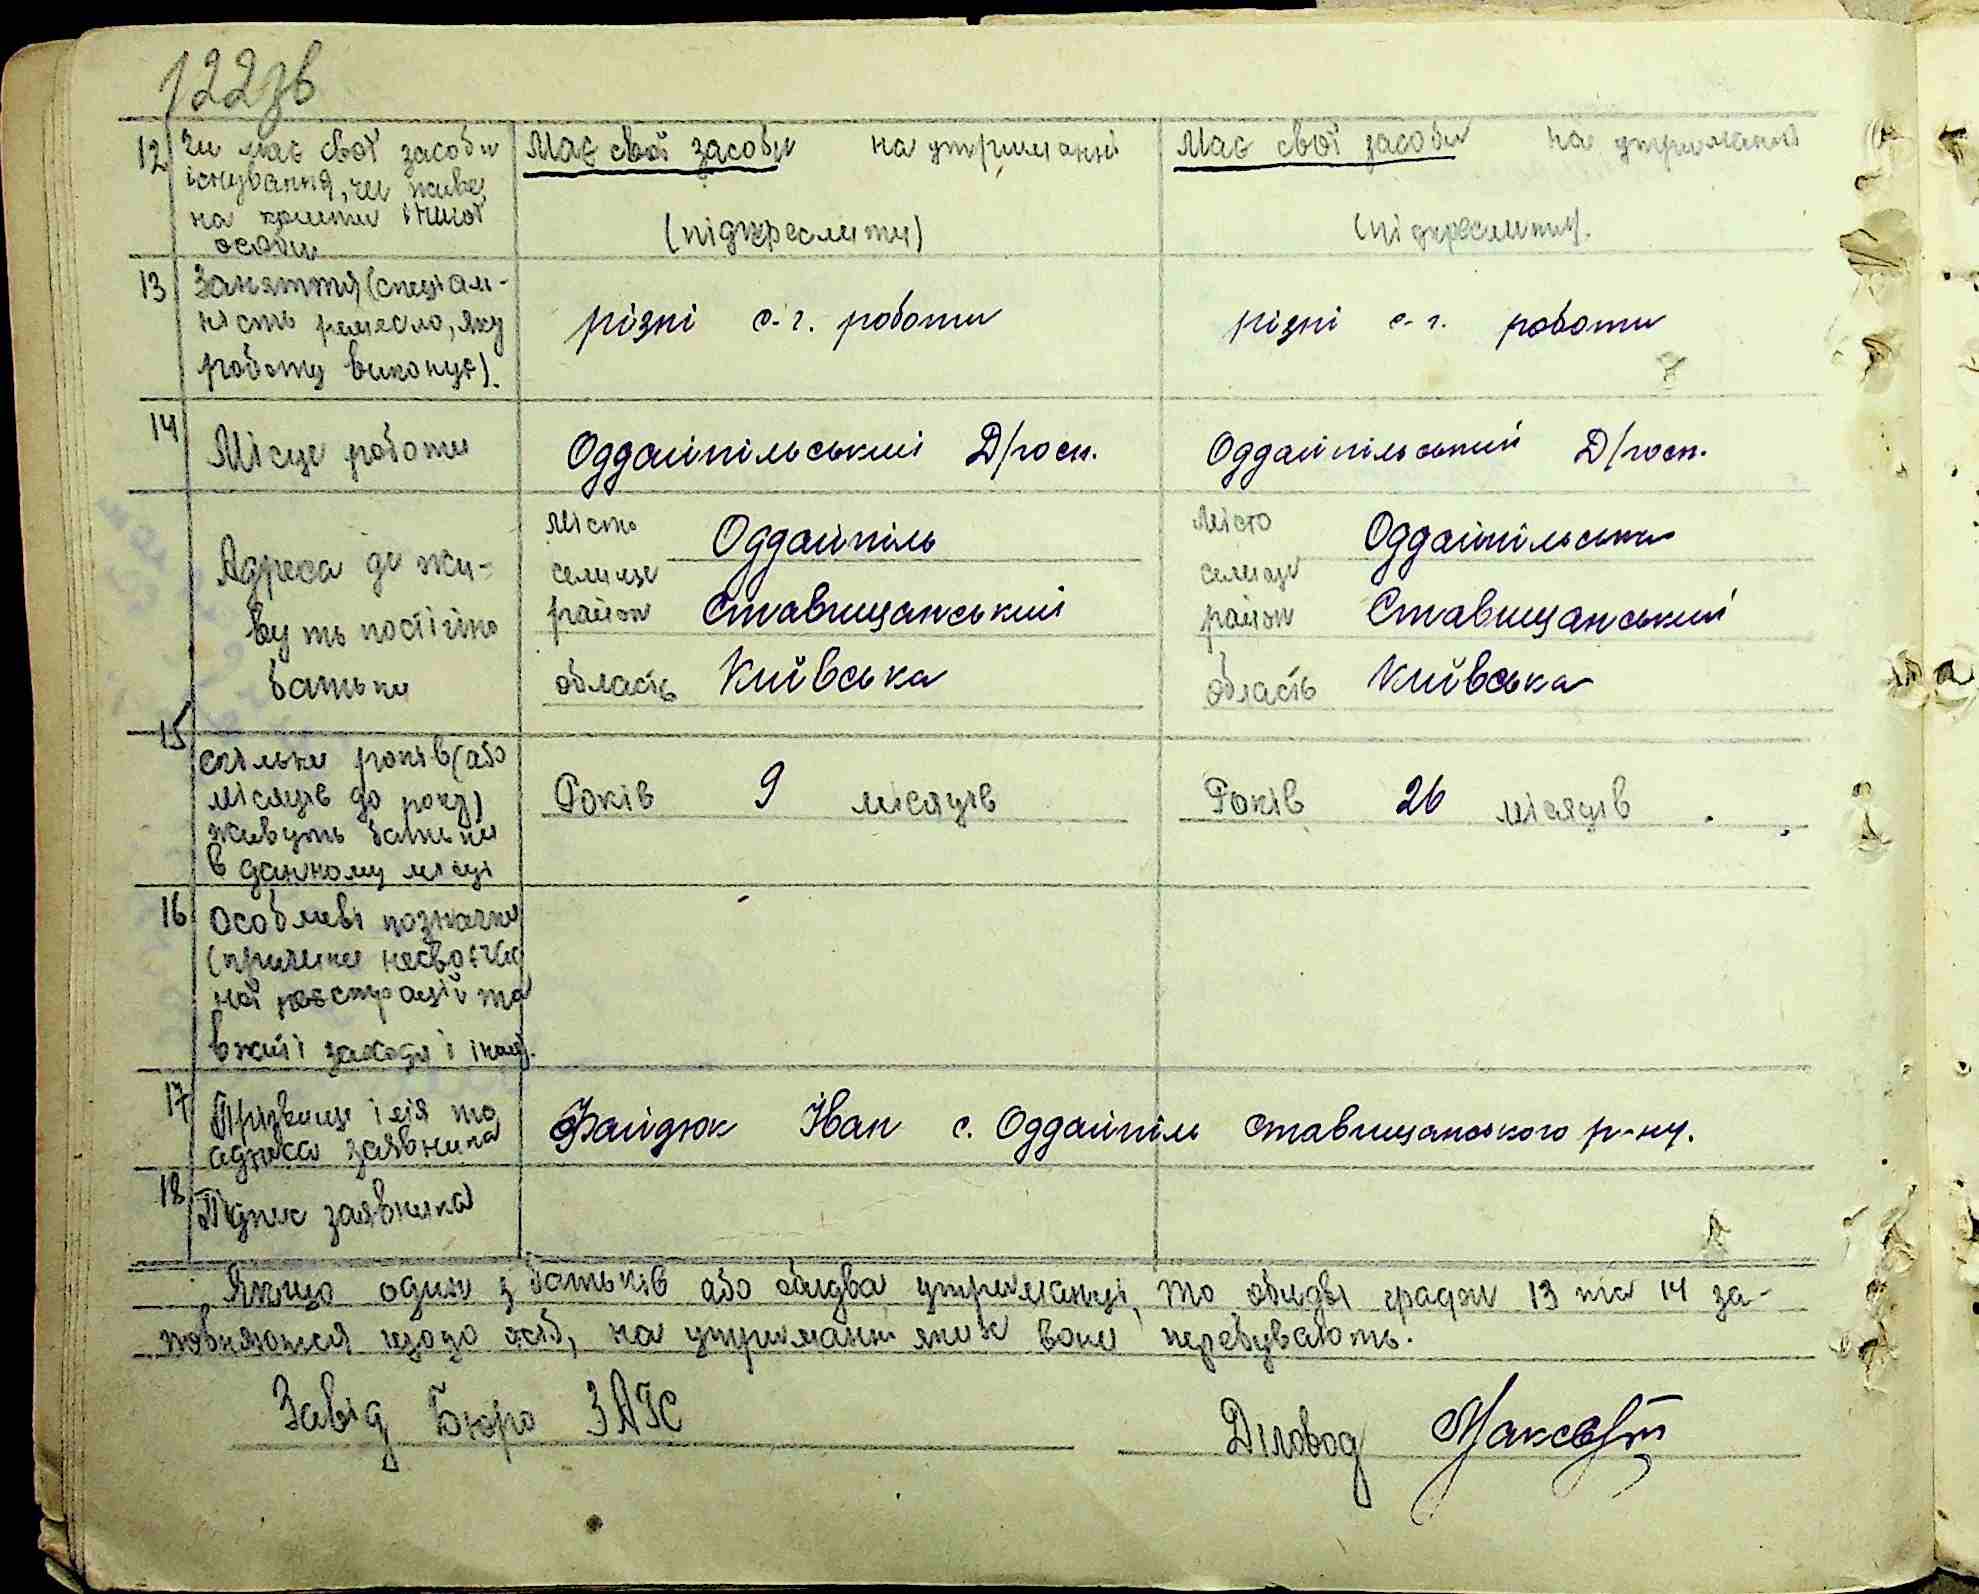 122зв
12 Чи має свої засоби
існування, чи живе
на кошти іншої
особи
Має свої засоби на утриманні
(підкреслити)
Має свої засоби на утриманні
(підкреслити).
13 Заняття (спеціаль-
ність ремесло, яку
роботу виконує).
різні с-г. роботи
різні с-г. роботи
14 Місце роботи
Оддайпільський Д/госп.
Оддайпільський Д/госп.
Адреса де жи-
вуть постійно
батьки
місто Оддайпіль
селище
район Ставищанський
область Київська
місто Оддайпільська
селище
район Ставищанський
область Київська
15 скільки років (або
місяців до року)
живуть батьки
в данному місці
Років 9 місяців
Років 26 місяців
16 Особливі позначки
(причини несвоєчас
ної реєстрації та
вжиті заходи і інш).
17 Прізвище імя та
адреса заявника
Файдюк Іван с. Оддайпіль Ставищанського р-ну.
18 Підпис заявника
Якщо один з батьків або обидва утриманці, то обидві графи 13 та 14 за-
повняються щодо осіб, на утриманні яких вони перебувають.
Завід Бюро ЗАГС
Діловод